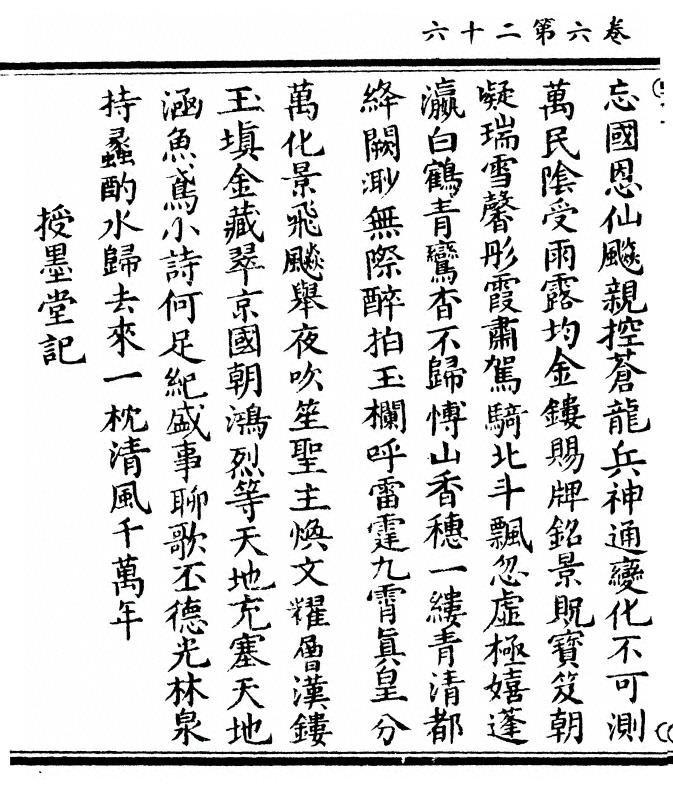 卷六第二十六
忘國恩仙飇親控蒼龍兵神通變化不可測
萬民陰受雨露均金鏤賜牌銘景貺寶笈朝
凝瑞雪馨彤霞肅駕騎北斗飄忽虛極嬉蓬
瀛白鶴青鸞杳不歸博山香穗一縷青清都
絳闕渺無際醉拍玉欄呼雷霆九霄眞皇分
萬化景飛飇舉夜吹笙聖主煥文耀層漢鏤
玉塡金藏翠京國朝鴻烈等天地充塞天地
涵魚鳶小詩何足紀盛事聊歌丕德光林泉
持蠡酌水歸去來一枕清風千萬年
授墨堂記